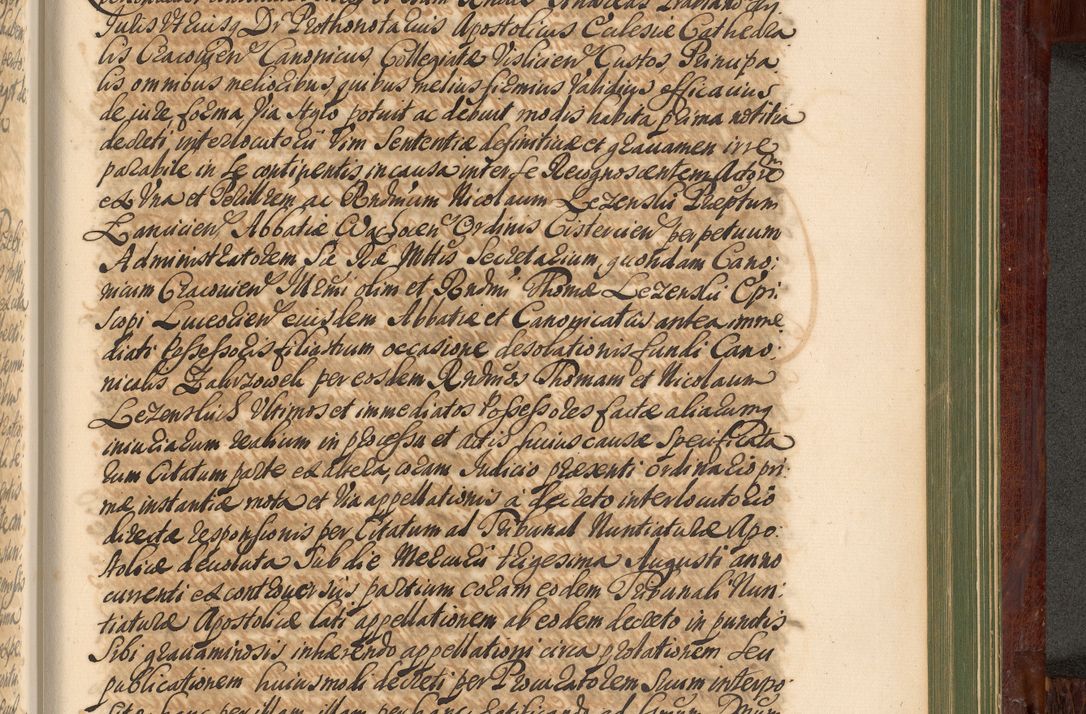 Juris Utriusq Dr Prothonotarius Apostolicus Ecclesiæ Cathedra
lis Cracovien Canonicus Collegiatæ Vislicien Custos Principa
lis omnibus melioribus, quibus melius firmius validius efficacius
de jure forma via stylo potuit ac debuit modis habita prima notitia
decreti, interlocutorii vim Sententiæ definitivæ et gravamen irre
parabile in se continentis in causa inter se Recognoscentem Actore
ex una et Perillrem ac Rndmum Nicolaum Lezenski Præptum
Abbatiæ Ordinis Cistercien perpetuum
Administratorem Sæ Ræ Mttis Secretarium, quondam Cano:
nicum Cracovien Illmi olim et Rndmi Thomæ Lezenskii Epi
scopi Luceorien eiusdem Abbatiæ et Canonicatus antea imme
diati possessoris filiastrum occasione desolationis fundi Cano:
nicalis per eosdem Rndmos Thomam et Nicolaum
Lezenskios ultimos et immediatos possessores factæ aliarumq
iniuriarum realium in processu et actis huius causæ Specificata
rum Citatum parte ex altera, coram Judicio præsenti ordinario pri:
mæ instantiæ mota et via appellationis à decreto interlocutorio
directæ responsionis per Citatum ad Tribunal Nuntiaturæ Apo:
stolicæ devoluta Sub die Mercurii trigesima Augusti anno
currenti ex controversiis partium coram eodem Tribunali Nun:
tiaturæ Apostolicæ lati appellationem ab eodem decreto in punctis
Sibi gravaminosis inhærendo appellationi circa prolationem Seu
publicationem huiusmodi decreti per Procuratorem Suum interpo